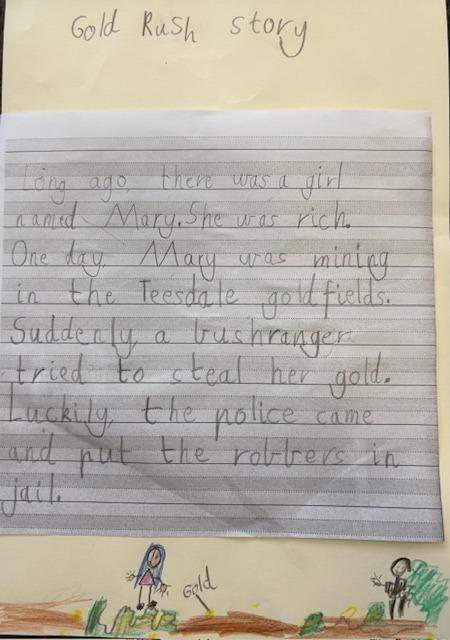 Gold Rush story
Long ago, there was a girl
named Mary. She was rich.
One day, Mary was mining
in the Teesdale goldfields.
Suddenly a bushranger
tried to steal her gold.
Luckily, the police came
and put the robbers in
jail.
Gold